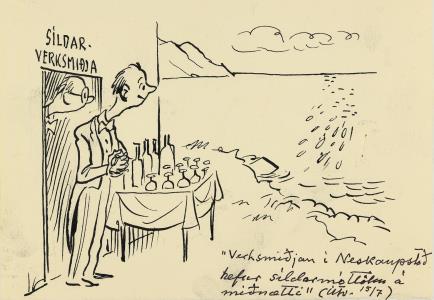 SÍLDAR-
VERKSMIÐJA
"Verksmiðjan í Neskaupstað
hefur síldarmóttöku á
miðnætti" (Útv. 15/7)